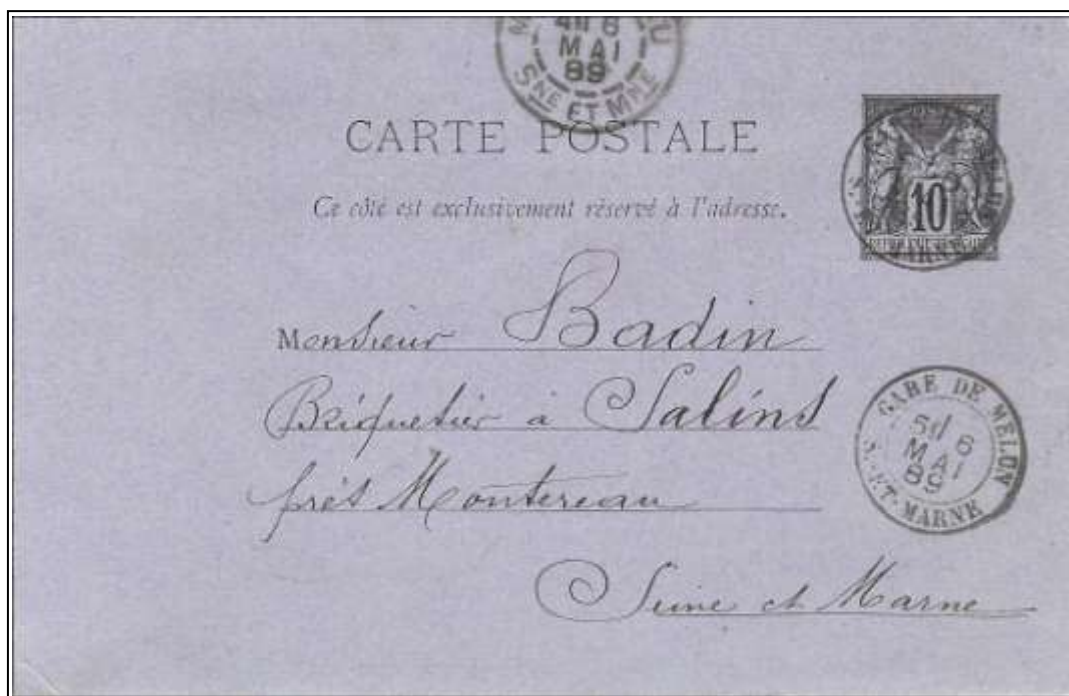 6
MAI
89
SNE ET MNE
CARTE POSTALE
Ce côté est exclusivement réservé à l'adresse.
10
Monsieur Badin
Briquetier à Salins
près Montereau
Seine et Marne
GARE DE MELUN
6
MAI
89
S.-ET-MARNE